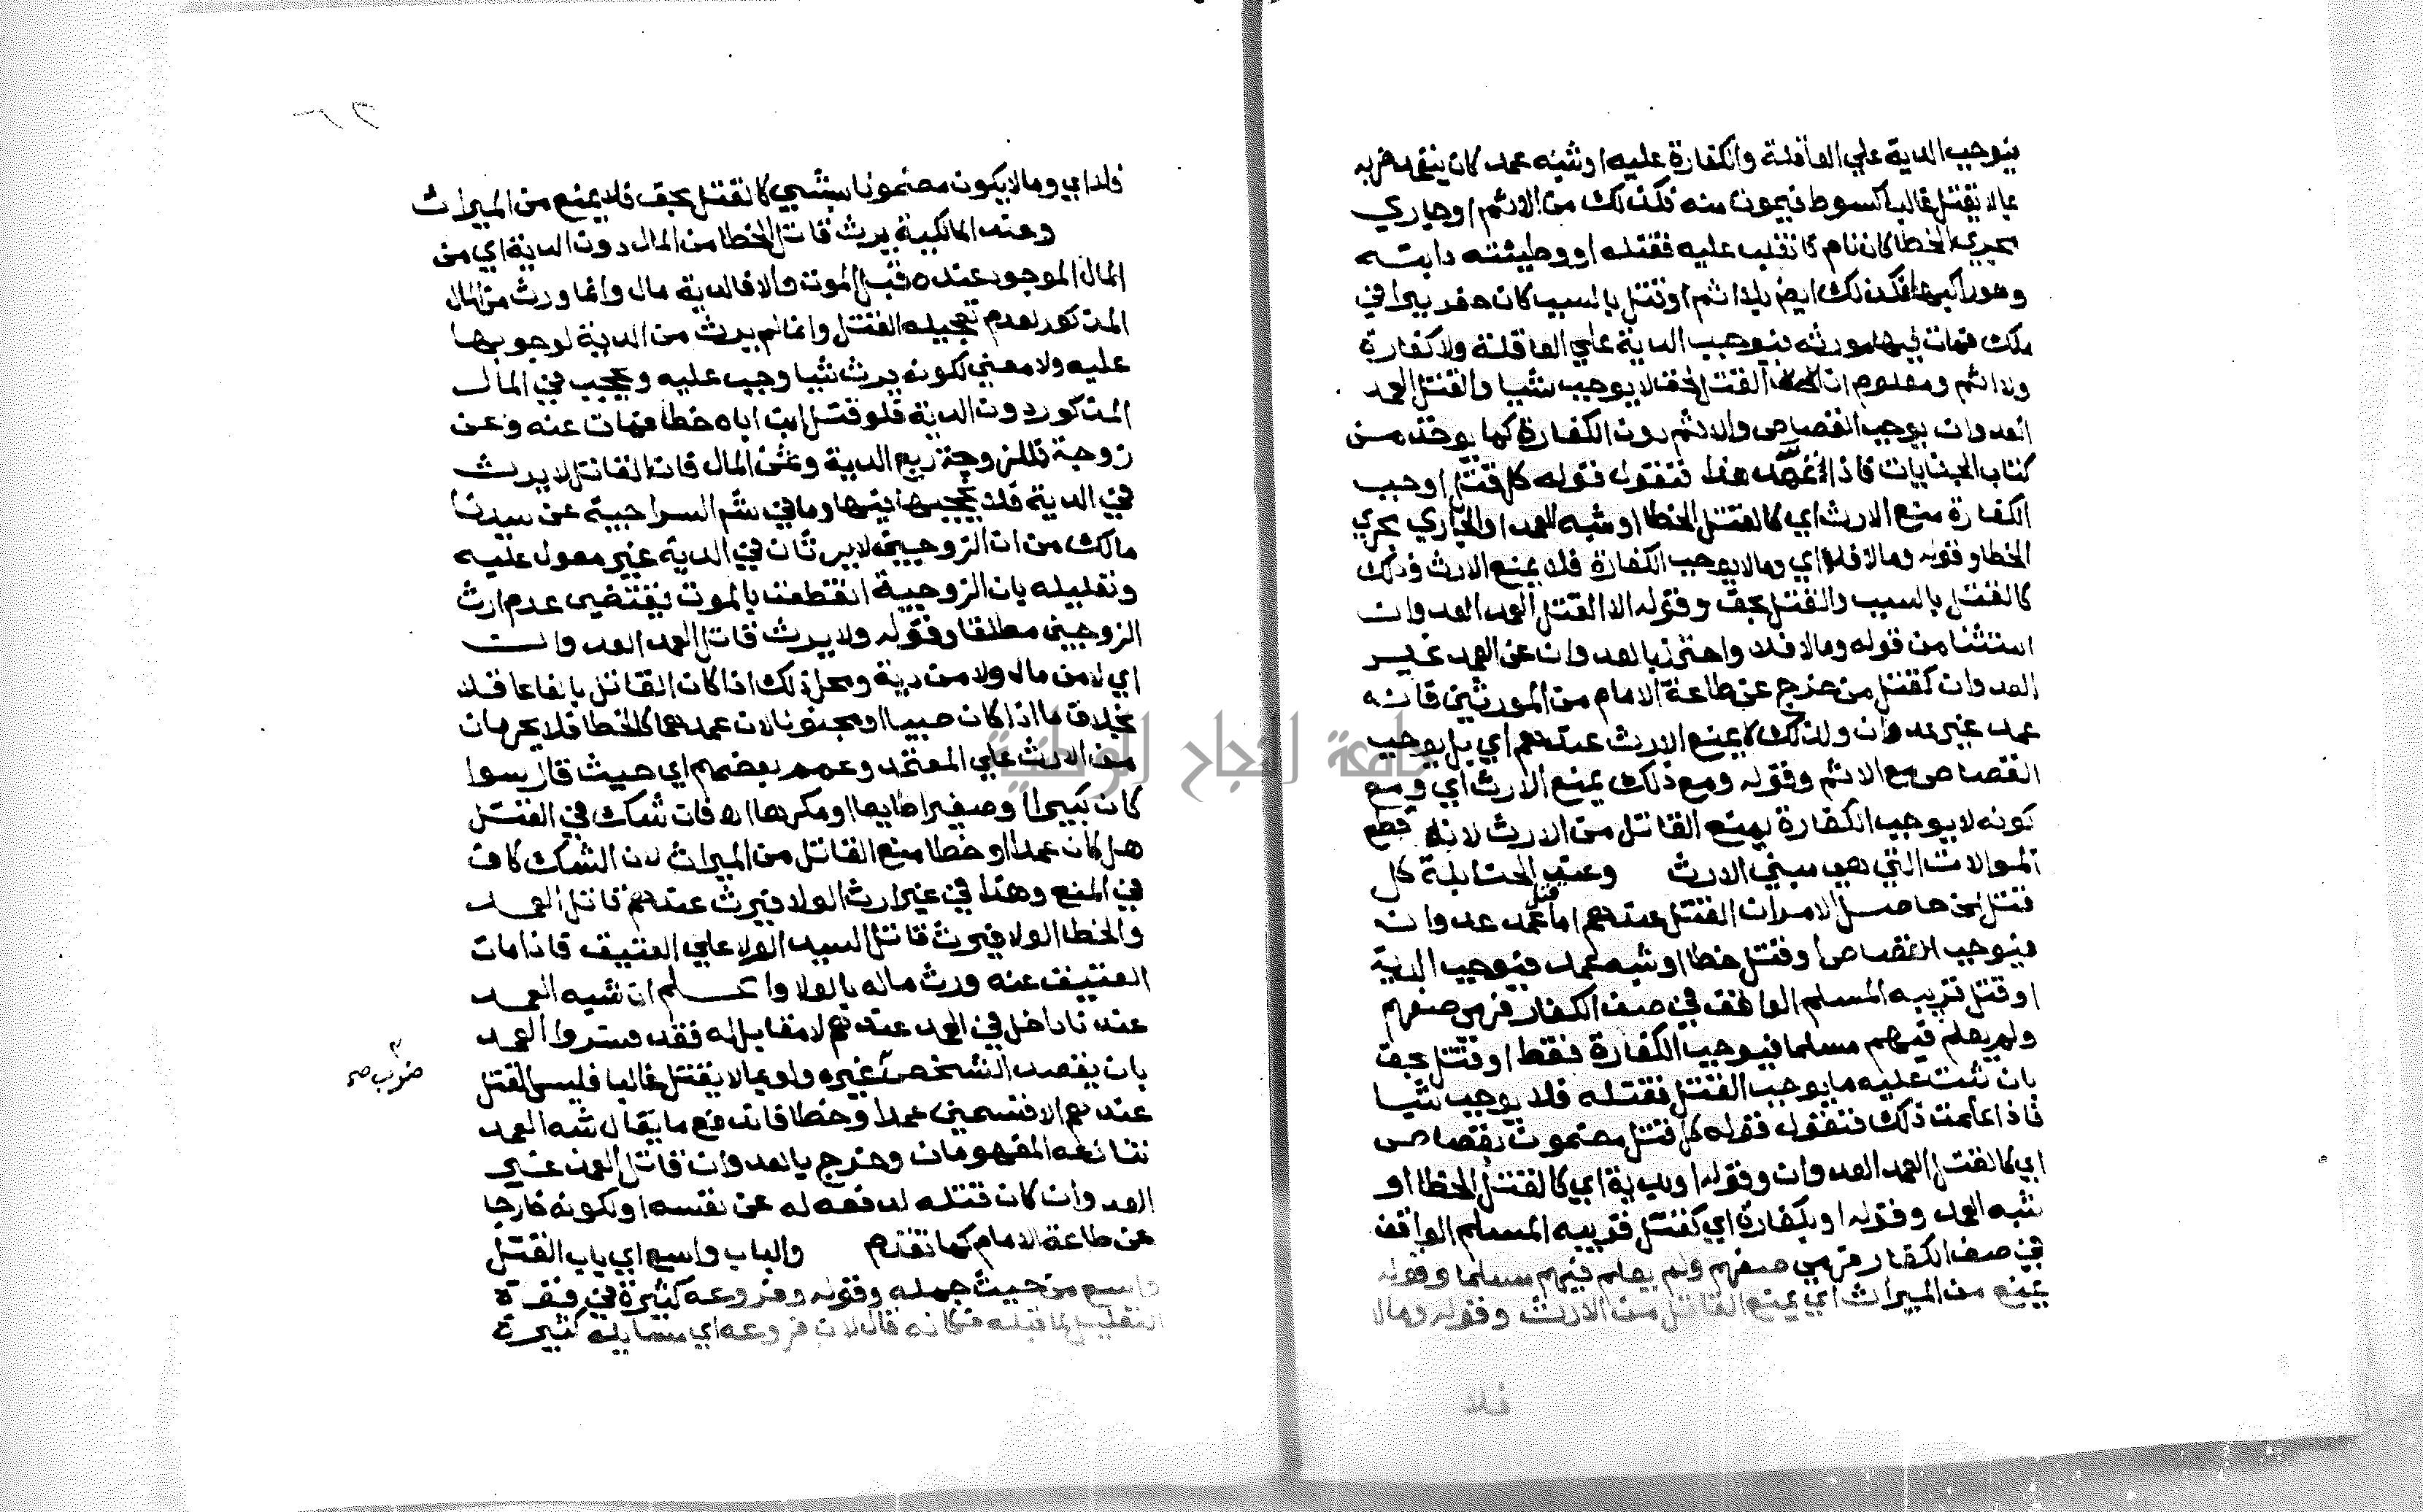 فيوجب الدية علي العاقلة والكفارة عليه او شبه عمد كان يتعمد ضربه
بما لا يقتل غالبا كسوط فيموت منه فكذلك من الاثم او جاري
مجري الخطا كان نام فانقلب عليه فقتله او وطيئته دابته
وهو راكبها فكذلك ايض بلا اثم او قتل بالسبب كان حفر بيرا في
ملك فمات فيها مورثه فيوجب الدية علي العاقلة ولا كفارة
ولا اثم ومعلوم ان القتل الحق لا يوجب شيا والقتل العمد
العدوان يوجب القصاص والاثم دون الكفارة كما يوخذ من
كتاب الجنايات فاذا تمهد هذا فتقول قوله كل قتل اوجب
الكفارة منع الارث اي كالقتل الخطا او شبه العمد او الجاري مجري
الخطا وقوله ومالا فلا اي ومالا يوجب الكفارة فلا يمنع الارث وذلك
كالقتل بالسبب والقتل بحق وقوله الا القتل العمد العدوان
استثنا من قوله ومالا فلا واحترز بالعدوان عن العمد غير
العدوان كقتل من خرج عن طاعة الامام من المورثين فانه
عمد غير عدوان ولذلك لا يمنع الارث عندهم اي بل يوجب
القصاص مع الاثم وقوله ومع ذلك يمنع الارث اي ومع
كونه لا يوجب الكفارة يمنع القاتل من الارث لانه قطع
الموالات التي هي مبني الارث وعند الحنابلة كل
قتل الخ حاصل الامر ان القتل عندهم اما قتل عمد عدوان
فيوجب القصاص او قتل خطا او شبه عمد فيوجب الدية
او قتل قريبه المسلم الواقف في صف الكفار فرمي صفهم
ولم يعلم فيهم مسلما فيوجب الكفارة فقط او قتل بحق
بان ثبت عليه ما يوجب القتل فقتله فلا يوجب شيا
فاذا علمت ذلك فتقول قوله كل قتل مضمون بقصاص
اي كالقتل العمد العدوان وقوله او بدية اي كالقتل الخطا او
شبه العمد وقوله او بكفارة اي كقتل قريبه المسلم الواقف
في صف الكفار فرمي صفهم ولم يعلم فيهم مسلما وقوله
يمنع من الميراث اي يمنع القاتل من الارث وقوله ومالا
فلا
فلا اي ومالا يكون مضمونا بشي كالقتل بحق فلا يمنع من الميراث
وعند المالكية يرث قاتل الخطا من المال دون الدية اي من
المال الموجود عنده قبل الموت والا فالدية مال وانما ورث من المال
المذكور لعدم تعجيله القتل وانما لم يرث من الدية لوجوبها
عليه ولا معني لكونه يرث شيا وجب عليه ويحجب في المال
المذكور دون الدية فلو قتل ابن اباه خطا فمات عنه وعن
زوجة فللزوجة ربع الدية وثمن المال فان القاتل لا يرث
في الدية فلا يحجبها فيها وما في شم السراجية عن سيدنا
مالك من ان الزوجين لا يرثان في الدية غير معول عليه
وتعليله بان الزوجية انقطعت بالموت يقتضي عدم ارث
الزوجين مطلقا وقوله ولا يرث قاتل العمد العدوان
اي لا من مال ولا من دية ومحل ذلك اذا كان القاتل بالغا عاقلا
بخلاف ما اذا كان صبيا او مجنونا لان عمدهما كالخطا فلا يحرمان
من الارث علي المعتمد وعمم بعضهم اي حيث قال سوا
كان كبيرا او صغيرا طايعا او مكرها اه فان شك في القتل
هل كان عمدا او خطا منع القاتل من الميراث لان الشك كاف
في المنع وهذا في غير ارث الولا فيرث عندهم قاتل العمد
والخطا الولا فيرث قاتل السيد الولا علي العتيق فاذا مات
العتيق عنه ورث ماله بالولا واعلم ان شبه العمد
عندنا داخل في العمد عندهم لا مقابل له فقد فسروا العمد
بان يقصد الشخص غيره ولو بما لا يقتل غالبا فليس القتل
ضرب صح
عندهم الا قسمين عمدا وخطا فاندفع ما يقال شبه العمد
تنازعه المفهومان وخرج بالعدوان قاتل العمد غير
العدوان كان قتله لدفعه له عن نفسه او لكونه خارجا
عن طاعة الامام كما تقدم والباب واسع اي باب القتل
واسع من حيث جمله وقوله وفروعه كثيرة في قوة
التعليل لما قبله فكانه قال لان فروعه اي مسايله كثيرة
جامعة النجاح الوطنية